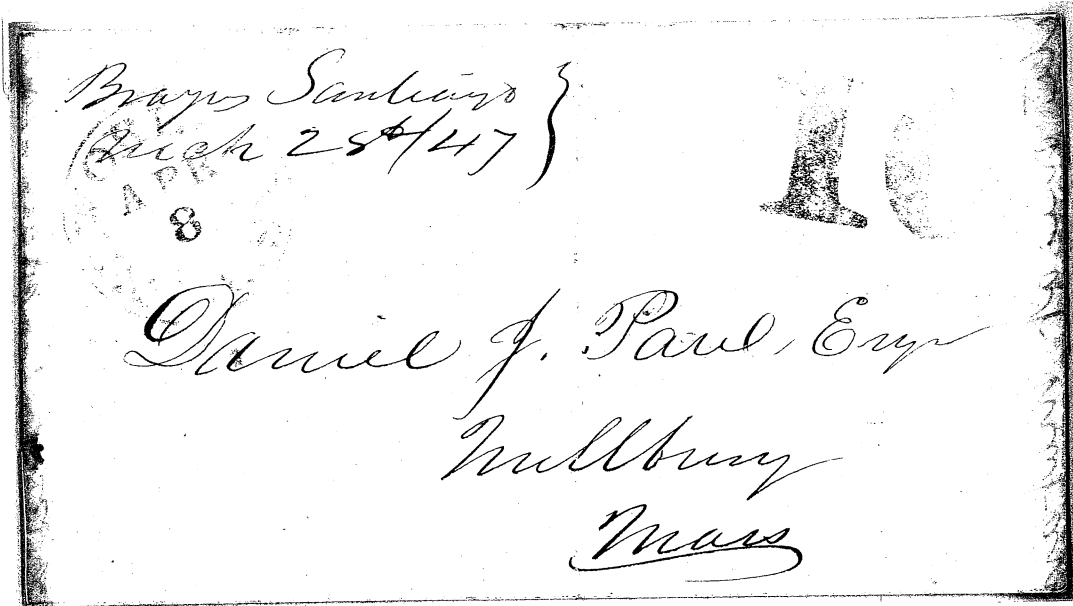 Brazos Santiago
Mrch 28th/47
APR
8
10
Daniel J. Paul, Esqr
Millbury
Mass